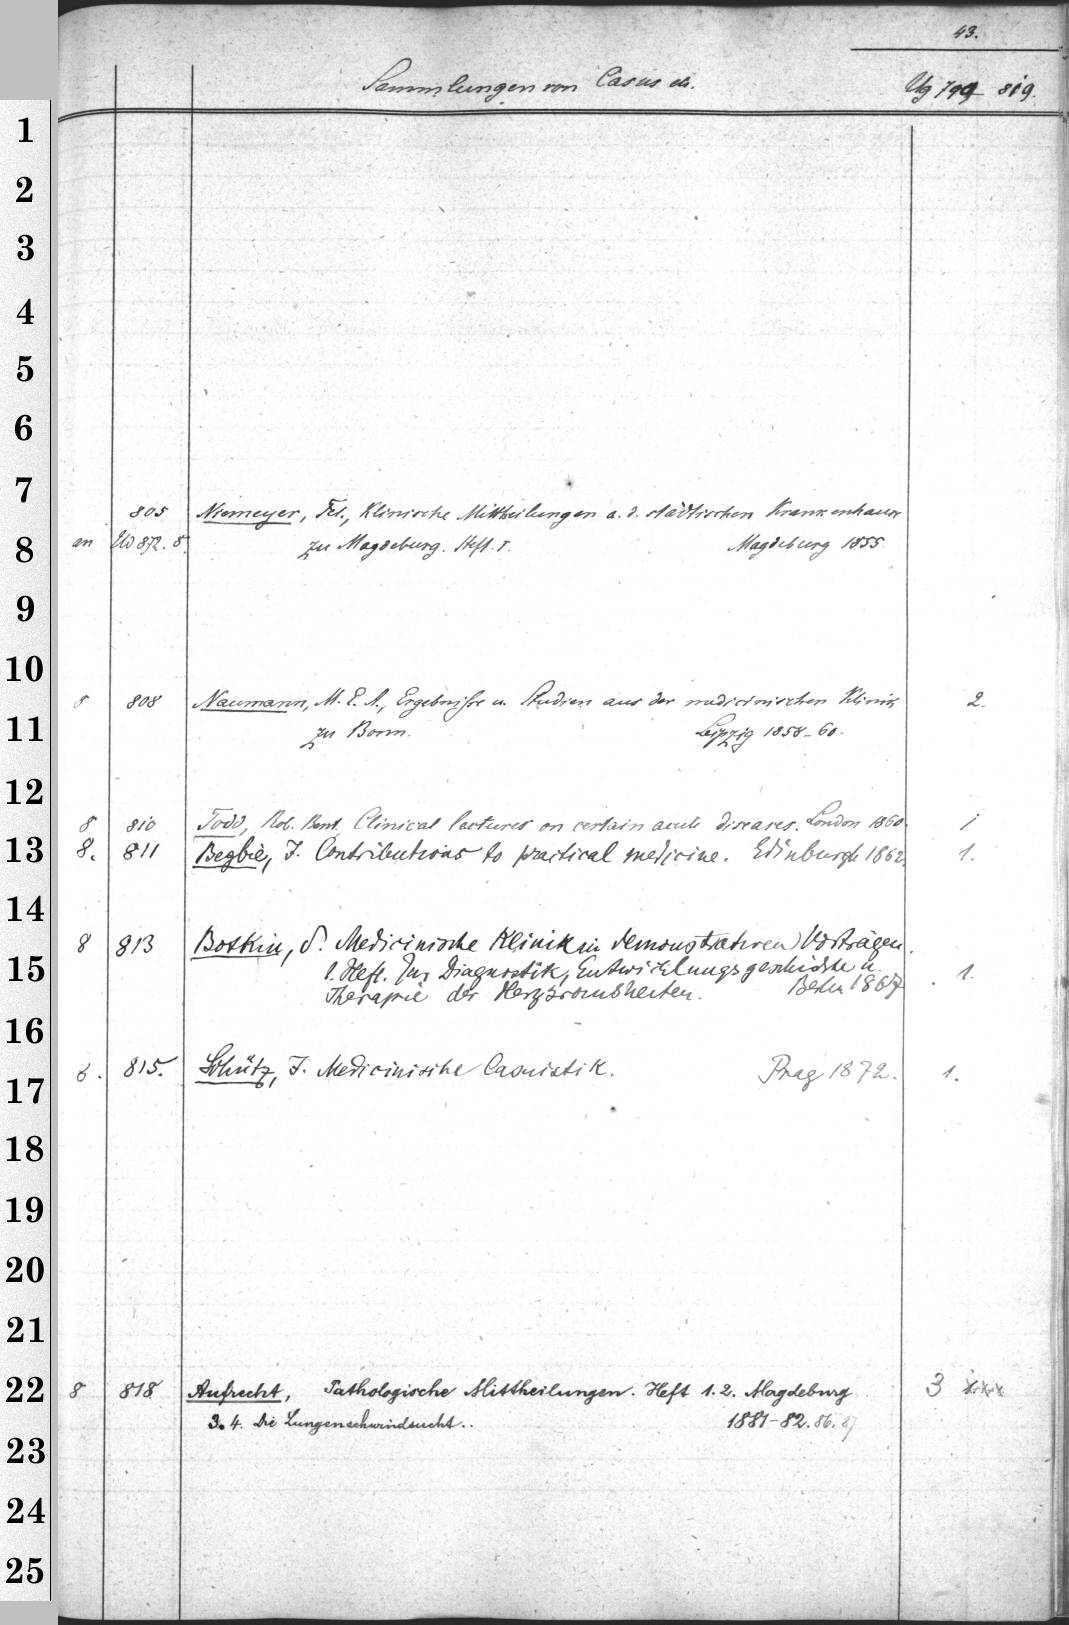 43.
Sammlungen von Casus etc. Ug 799 819.
1
2
3
4
5
6
7
805 Niemeyer, Fel., Klinische Mittheilungen a. d. städtischen Krankenhause
8
an Ud 872. 8. zu Magdeburg. Heft. I. Magdeburg 1855.
9
10
8 808 Naumann, M. E. A., Ergebnisse u. Studien aus der medicinischen Klinik 2.
11
zu Bonn. Leipzig 1858-60.
12
8 810 Todd, Rob. Bent, Clinical lectures on certain acute diseases. London 1860. 1
13
8. 811 Begbie, J. Contributions to practical medicine. Edinburgh 1862. 1.
14
8 813 Botkin, S. Medicinische Klinik in demonstrativen Vorträgen.
15
1. Heft. Zur Diagnostik, Entwicklungsgeschichte u. 1.
Therapie der Herzkrankheiten. Berlin 1867
16
8. 815. Schütz, J. Medicinische Casuistik. Prag 1872. 1.
17
18
19
20
21
22
8 818 Aufrecht, Pathologische Mittheilungen. Heft 1. 2. Magdeburg 3
3. 4. Die Lungenschwindsucht.. 1881-82. 86. 87
23
24
25